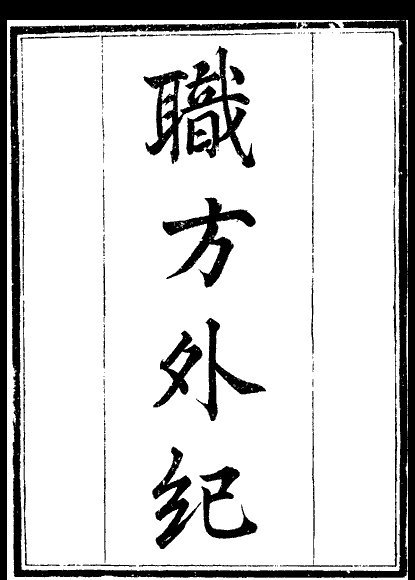 職方外紀